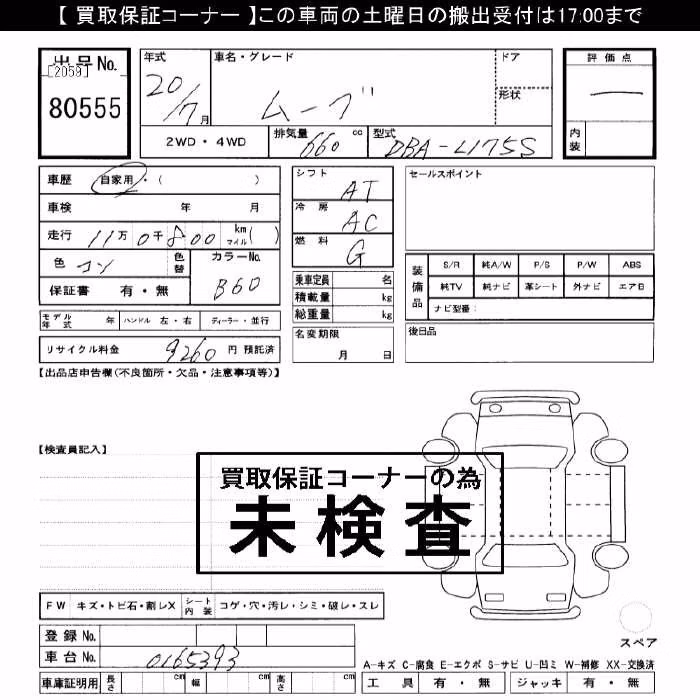 【 買取保証コーナー 】この車両の土曜日の搬出受付は17:00まで
出品No.
[2059]
80555
年式
20/7月
車名・グレード
ムーブ
ドア
形状
評価点
内装
2WD・4WD
排気量 660 cc
型式 DBA-L175S
車歴 自家用・( )
車検 年 月
走行 11万 0千 800 km マイル( )
色 コン
色替
カラーNo. B60
保証書 有・無
シフト AT
冷房 AC
燃料 G
乗車定員 名
積載量 kg
総重量 kg
名変期限
月 日
セールスポイント
装備品
S/R 純A/W P/S P/W ABS
純TV 純ナビ 革シート 外ナビ エアB
ナビ型番:
後日品
モデル年式 年 ハンドル 左・右 ディーラー・並行
リサイクル料金 9260 円 預託済
【出品店申告欄(不良箇所・欠品・注意事項等)】
【検査員記入】
買取保証コーナーの為
未検査
FW キズ・トビ石・割レX シート内装 コゲ・穴・汚レ・シミ・破レ・スレ
登録No.
車台No. 0165393
車庫証明用 長さ cm 幅 cm 高さ cm
スペア
A-キズ C-腐食 E-エクボ S-サビ U-凹ミ W-補修 XX-交換済
工具 有・無 ジャッキ 有・無